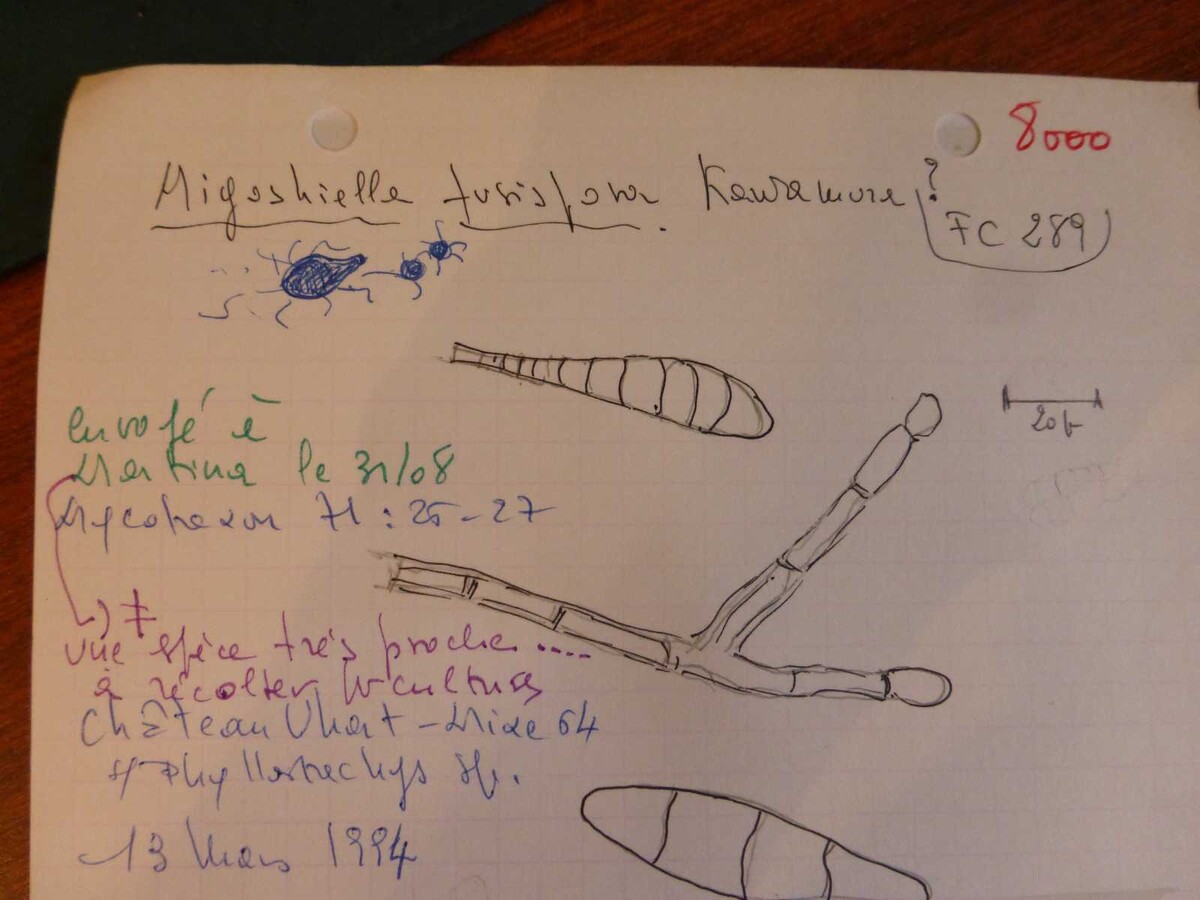 8000
Miyoshiella fusispora Kawamura ?
FC 289
envoyé à
Martina le 31/08
20µ
Mycotaxon 71 : 25-27
≠
une espèce très proche ....
à récolter pr cultures
Château Uhart-Mixe 64
s/ Phyllostachys sp.
13 Mars 1994